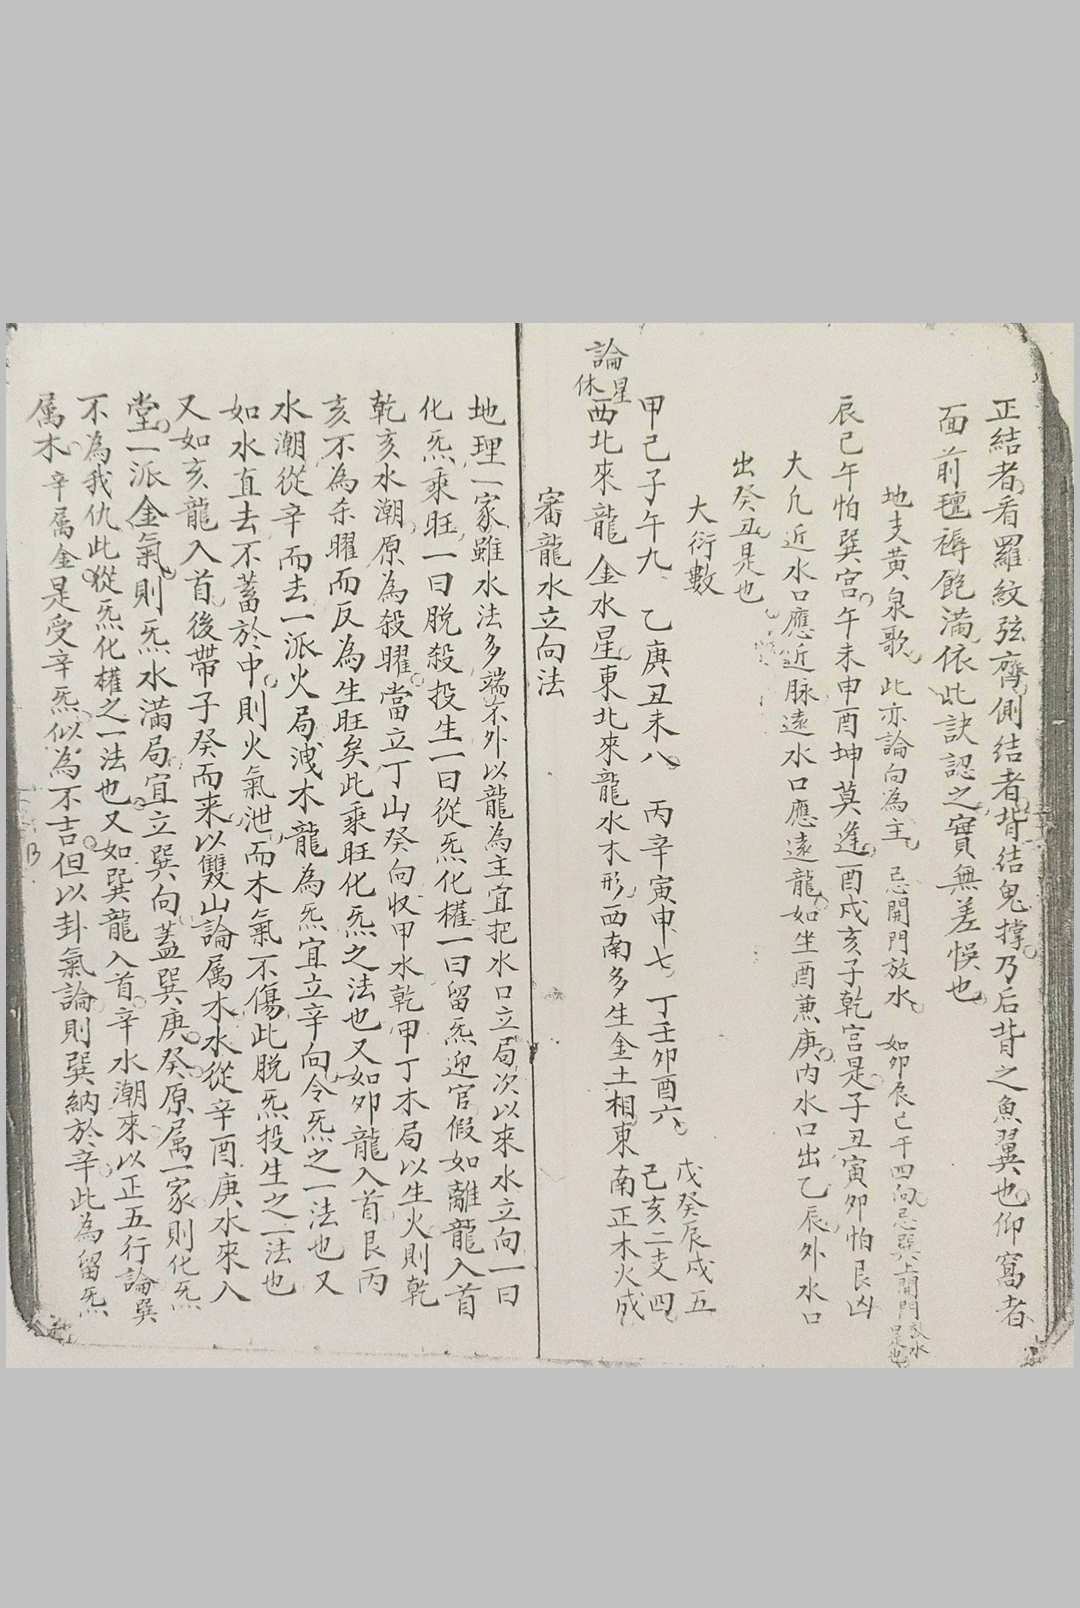 正結者看羅紋弦齊側結者背結鬼撑乃后背之魚翼也仰窩者
面前毬褥飽滿依此訣認之實無差悞也
地支黄泉歌 此亦論向為主 忌開門放水 如卯辰巳午四向忌巽上開門放水是也
辰巳午怕巽宫午未申酉坤莫逢酉戍亥子乾宫是子丑寅卯怕艮凶
大凢近水口應近脉遠水口應遠龍如坐酉兼庚内水口出乙辰外水口
出癸丑是也
大衍數
甲己子午九 乙庚丑未八 丙辛寅申七 丁壬卯酉六 戊癸辰戍五 己亥二支四
論星休
西北來龍金水星東北來龍水木形西南多生金土相東南正木火成
審龍水立向法
地理一家雖水法多端不外以龍為主宜把水口立局次以來水立向一曰
化炁乘旺一曰脱殺投生一曰從炁化權一曰留炁迎官假如離龍入首
乾亥水潮原為殺曜當立丁山癸向収甲水乾甲丁木局以生火則乾
亥不為杀曜而反為生旺矣此乘旺化炁之法也又如卯龍入首艮丙
水潮從辛而去一派火局洩木龍為炁宜立辛向令炁之一法也又
如水直去不蓄於中則火氣泄而木氣不傷此脱炁投生之一法也
又如亥龍入首後帶子癸而来以雙山論属木水從辛酉庚水來入
堂一派金氣則炁水滿局宜立巽向葢巽庚癸原属一家則化炁
不為我仇此從炁化權之一法也又如巽龍入首辛水潮來以正五行論巽
属木辛属金是受辛炁似為不吉但以卦氣論則巽納於辛此為留炁